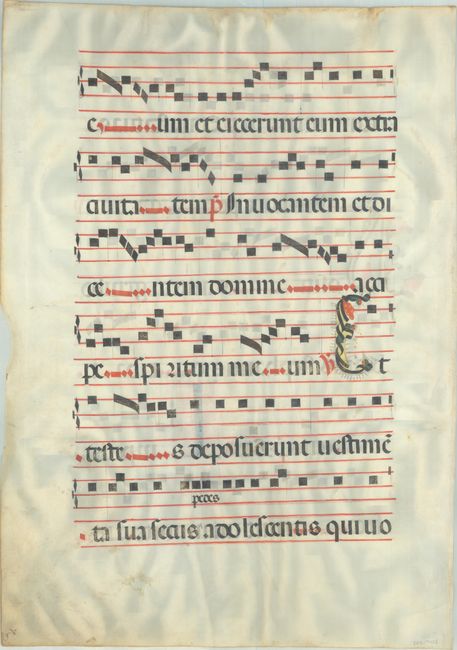 e um et eiecerunt eum extra
civita tem p̃ Invocantem et di
ce ntem domine acci
pe spiritum me um ℣ Et
teste s deposuerunt vestimē
pedes
ta sua secus adolescentis qui vo